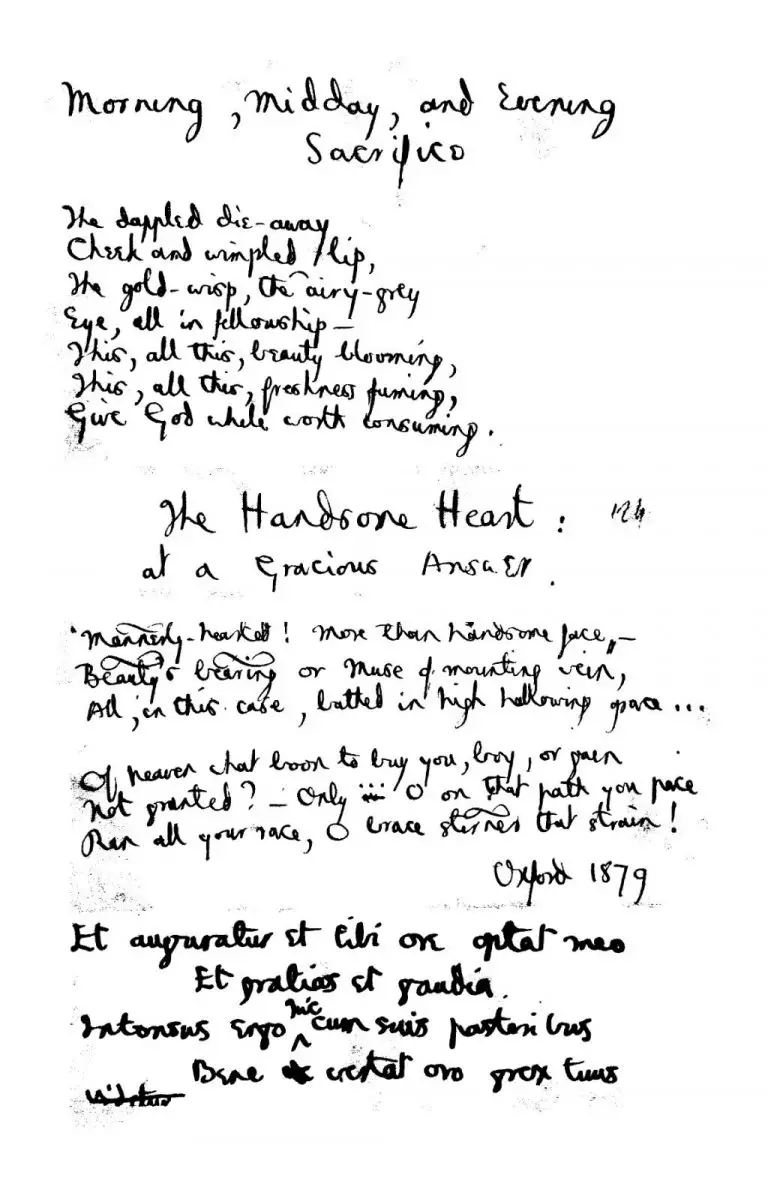 Morning, Midday, and Evening
Sacrifice
The dappled die-away
Cheek and wimpled lip,
The gold-wisp, the airy-grey
Eye, all in fellowship —
This, all this, beauty blooming,
This, all this, freshness fuming,
Give God while worth consuming.
The Handsome Heart:
at a Gracious Answer.
'Mannerly-hearted! more than handsome face, —
Beauty's bearing or Muse of mounting vein,
All, in this case, bathed in high hallowing grace...
Of heaven what boon to buy you, boy, or gain
Not granted? — Only O on that path you pace
Run all your race, O brace sterner that strain!
Oxford 1879
Et auguratur et tibi ore optat meo
Et gratias et gaudia.
Intonsus ergo hic cum suis pastoribus
Bene crescat oro grex tuus